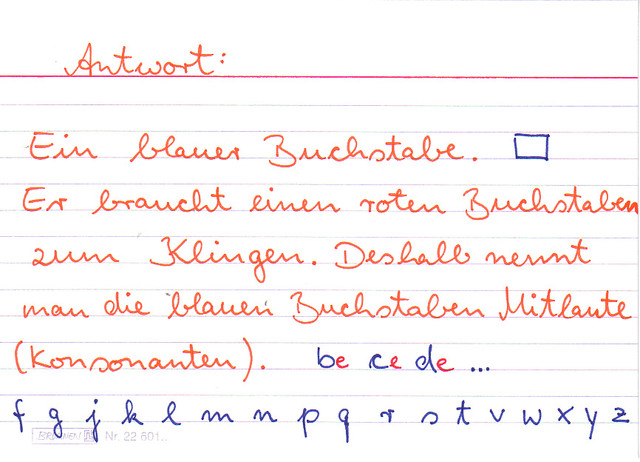 Antwort:
Ein blauer Buchstabe.
Er braucht einen roten Buchstaben
zum Klingen. Deshalb nennt
man die blauen Buchstaben Mitlaute
(Konsonanten). be ce de ...
f g j k l m n p q r s t v w x y z
BRUNNEN Nr. 22 601..